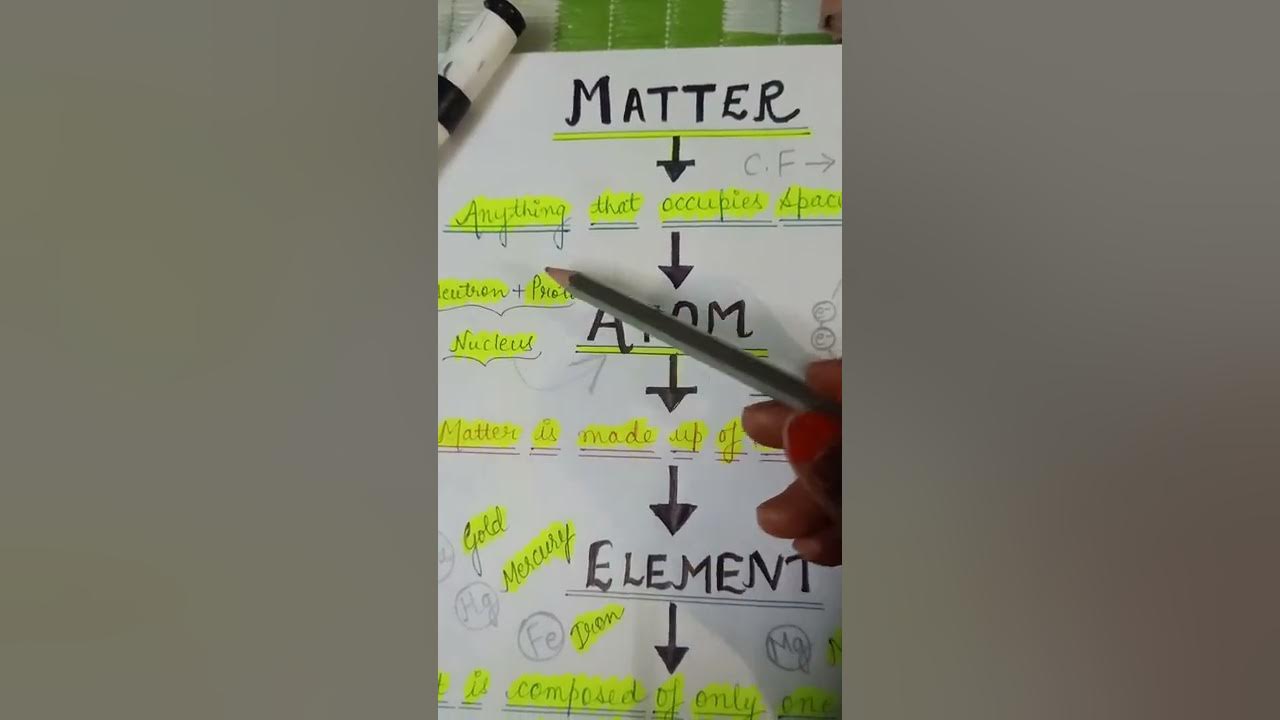 MATTER
C.F →
Anything that occupies spac
eutron + Prot
ATOM
Nucleus
Matter is made up of
Gold
Mercury
ELEMENT
Hg
Fe Iron
Mg
is composed of only one